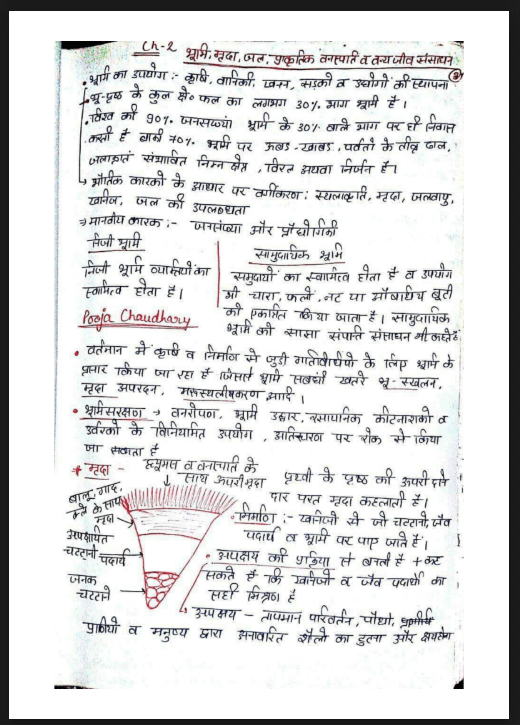 Ch-2 भूमि, मृदा, जल, प्राकृतिक वनस्पति व वन्य जीव संसाधन
भूमि का उपयोग :- कृषि, वानिकी, खनन, सड़को व उद्योगों की स्थापना
भू-पृष्ठ के कुल क्षे० फल का लगभग 30% भाग भूमि है।
विश्व की 90% जनसंख्या भूमि के 30% वाले भाग पर ही निवास
करती है बाकी 70% भूमि पर ऊबड़-खाबड़, पर्वतों के तीव्र ढाल,
जलाक्रांत संभावित निम्न क्षेत्र, विरल अथवा निर्जन है।
→ भौतिक कारकों के आधार पर वर्गीकरण : स्थलाकृति, मृदा, जलवायु,
खनिज, जल की उपलब्धता
→ मानवीय कारक :- जनसंख्या और प्रौद्योगिकी
निजी भूमि
निजी भूमि व्यक्तियों का
स्वामित्व होता है।
Pooja Chaudhary
सामुदायिक भूमि
समुदायों का स्वामित्व होता है व उपयोग
भी चारा, फलों, नट या औषधीय बूटी
को एकत्रित किया जाता है। सामुदायिक
भूमि को साझा संपत्ति संसाधन भी कहते हैं
• वर्तमान में कृषि व निर्माण से जुड़ी गतिविधियों के लिए भूमि के
प्रसार किया जा रहा है जिससे भूमि सबंधी खतरे भू-स्खलन,
मृदा अपरदन, मरूस्थलीयकरण आदि।
• भूमि संरक्षण → वनरोपण, भूमि उद्धार, रसायनिक कीटनाशकों व
उर्वरकों के विनियमित उपयोग, अतिचारण पर रोक से किया
जा सकता है
* मृदा - पृथ्वी के पृष्ठ की ऊपरी
दार परत मृदा कहलाती है।
ह्यूमस व वनस्पति के
साथ ऊपरी मृदा
बालू, गाद,
क्ले के साथ
मृदा
अपक्षयित
चट्टानी पदार्थ
जनक
चट्टानें
• निर्माण :- खनिजों से जो चट्टानों, जैव
पदार्थ व भूमि पर पाए जाते हैं।
• अपक्षय की प्रक्रिया से बनती है + कह
सकते हैं कि खनिजों व जैव पदार्थों का
सही मिश्रण है
→ अपक्षय - तापमान परिवर्तन, पौधों,
प्राणियों व मनुष्य द्वारा अनावरित शैलों का टूटना और क्षय होना